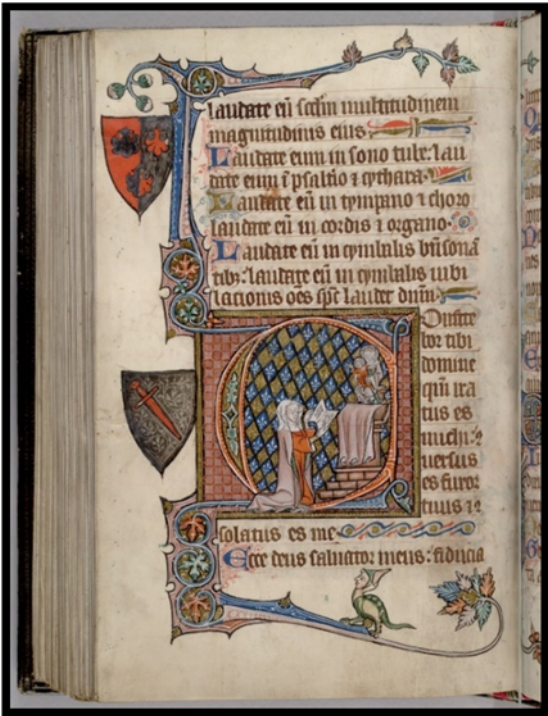 laudate eū scdm multitudinem
magnitudinis eius
Laudate eum in sono tube: lau
date eum ī psaltio ⁊ cythara
Laudate eum in tympano ⁊ choro
laudate eū in cordis ⁊ organo
Laudate eū in cymbalis bn̄ sonā
tibȝ: laudate eū in cymbalis iubi
lacionis oēs spc̄ laudet dn̄m
Confite
bor tibi
domine
qm̄ ira
tus es
michi:
uersus
es furor
tuus ⁊
solatus es me
Ecce deus saluator meus: fiducia